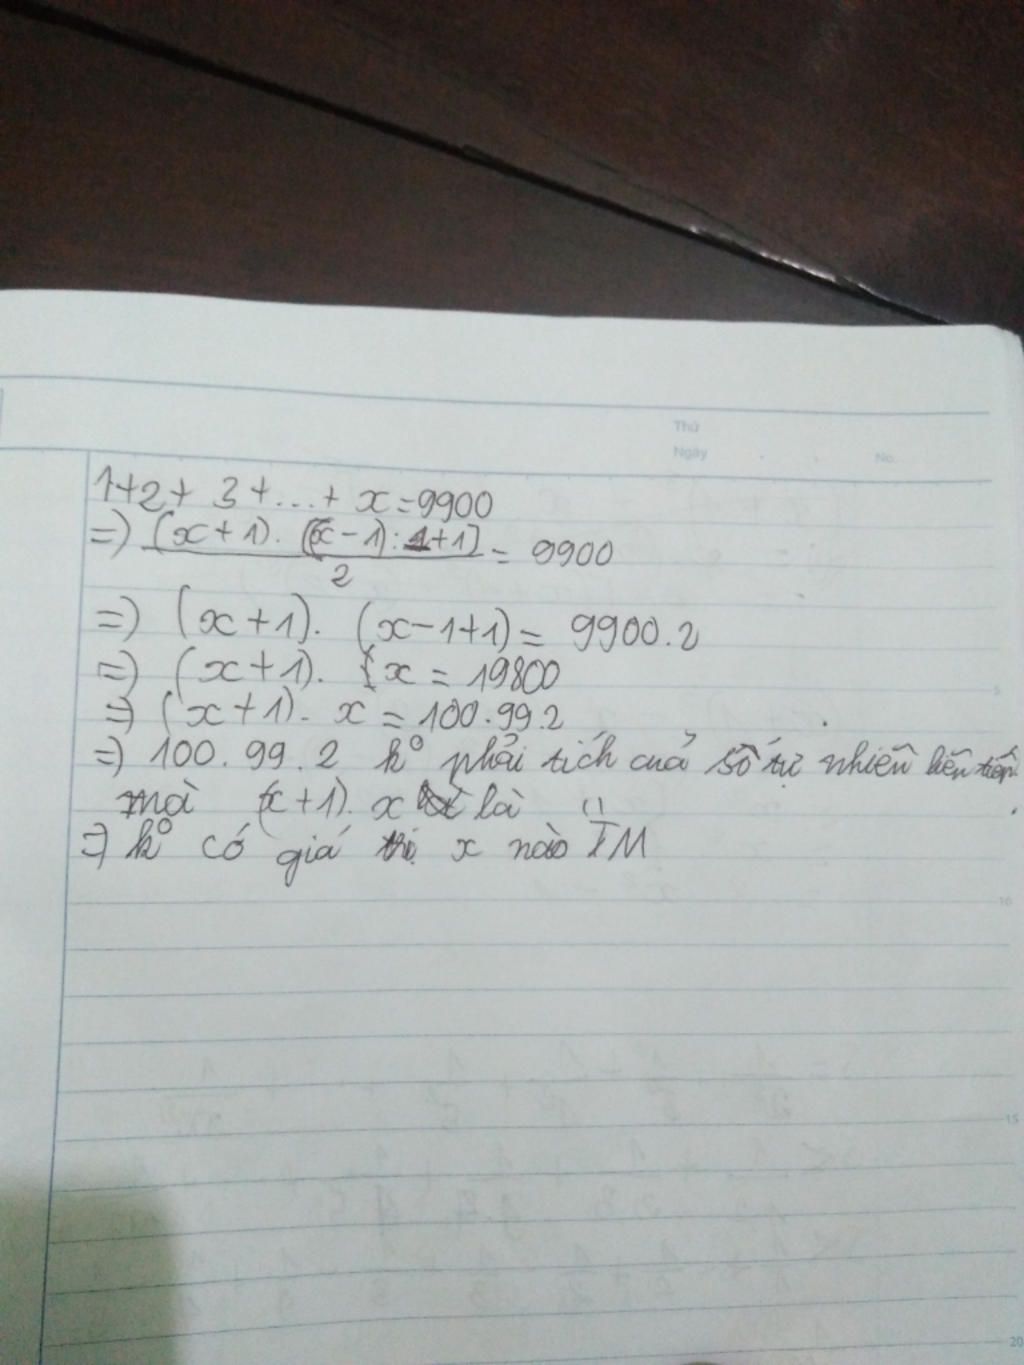 Thứ
Ngày No.
1+2+ 3+...+ x=9900
=> (x+1). [(x-1):1+1] / 2 = 9900
=> (x+1). (x-1+1)= 9900.2
=> (x+1). x = 19800
=> (x+1). x = 100.99.2
=> 100.99.2 k° phải tích cuả số tự nhiên liên tiếp.
mà (x+1). x là "
=> k° có giá trị x nào TM
5
10
15
20